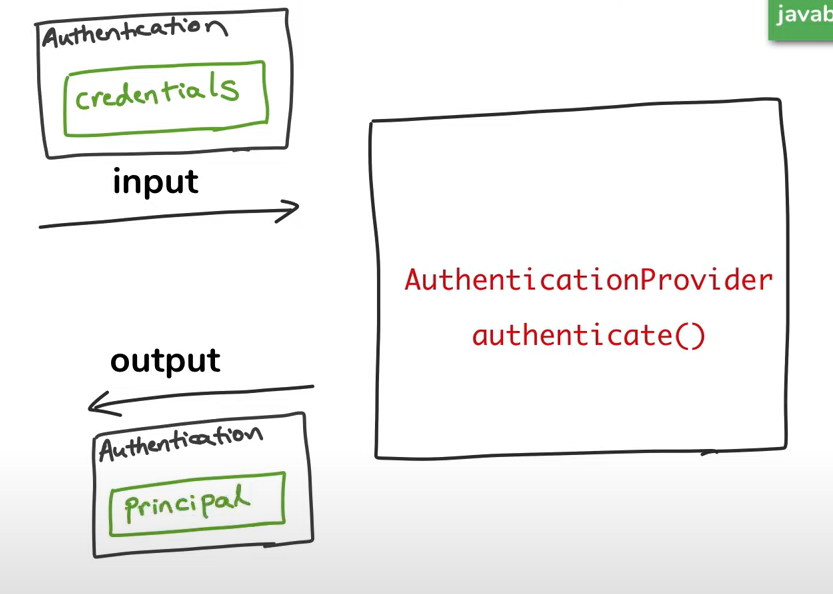 Authentication
credentials
input
AuthenticationProvider
authenticate()
output
Authentication
Principal
javab